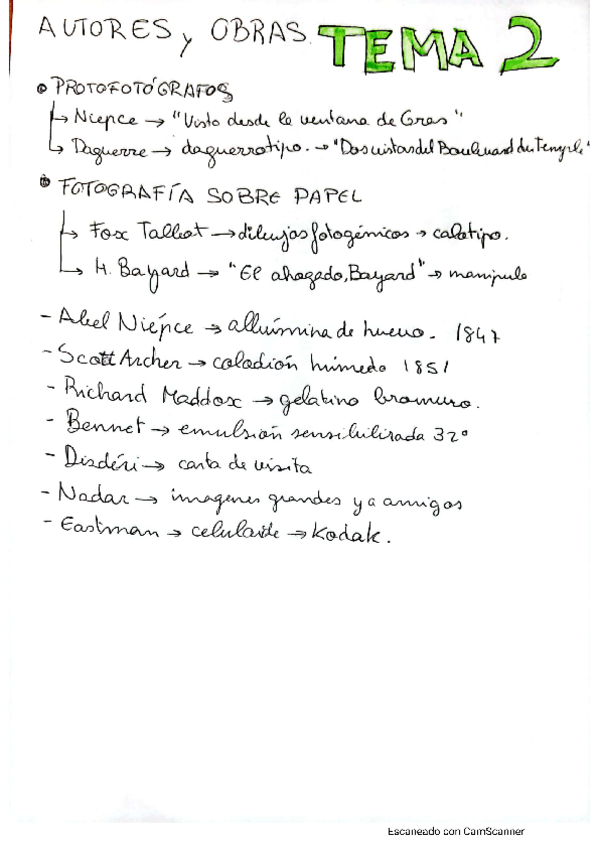 AUTORES y OBRAS. TEMA 2
• PROTOFOTÓGRAFOS
↳ Niepce → "Visto desde la ventana de Gras"
↳ Daguerre → daguerrotipo. → "Dos vistas del Boulevard du Temple"
• FOTOGRAFÍA SOBRE PAPEL
↳ Fox Talbot → dibujos fotogémicos → calotipo.
↳ H. Bayard → "El ahogado, Bayard" → manipulo
- Abel Niépce → alluímina de huevo. 1847
- Scott Archer → colodión húmedo 1851
- Richard Maddox → gelatino bromuro.
- Bennet → emulsión sensibilizada 32º
- Disdéri → carta de visita
- Nadar → imagenes grandes y a amigos
- Eastman → celuloide → Kodak.
Escaneado con CamScanner